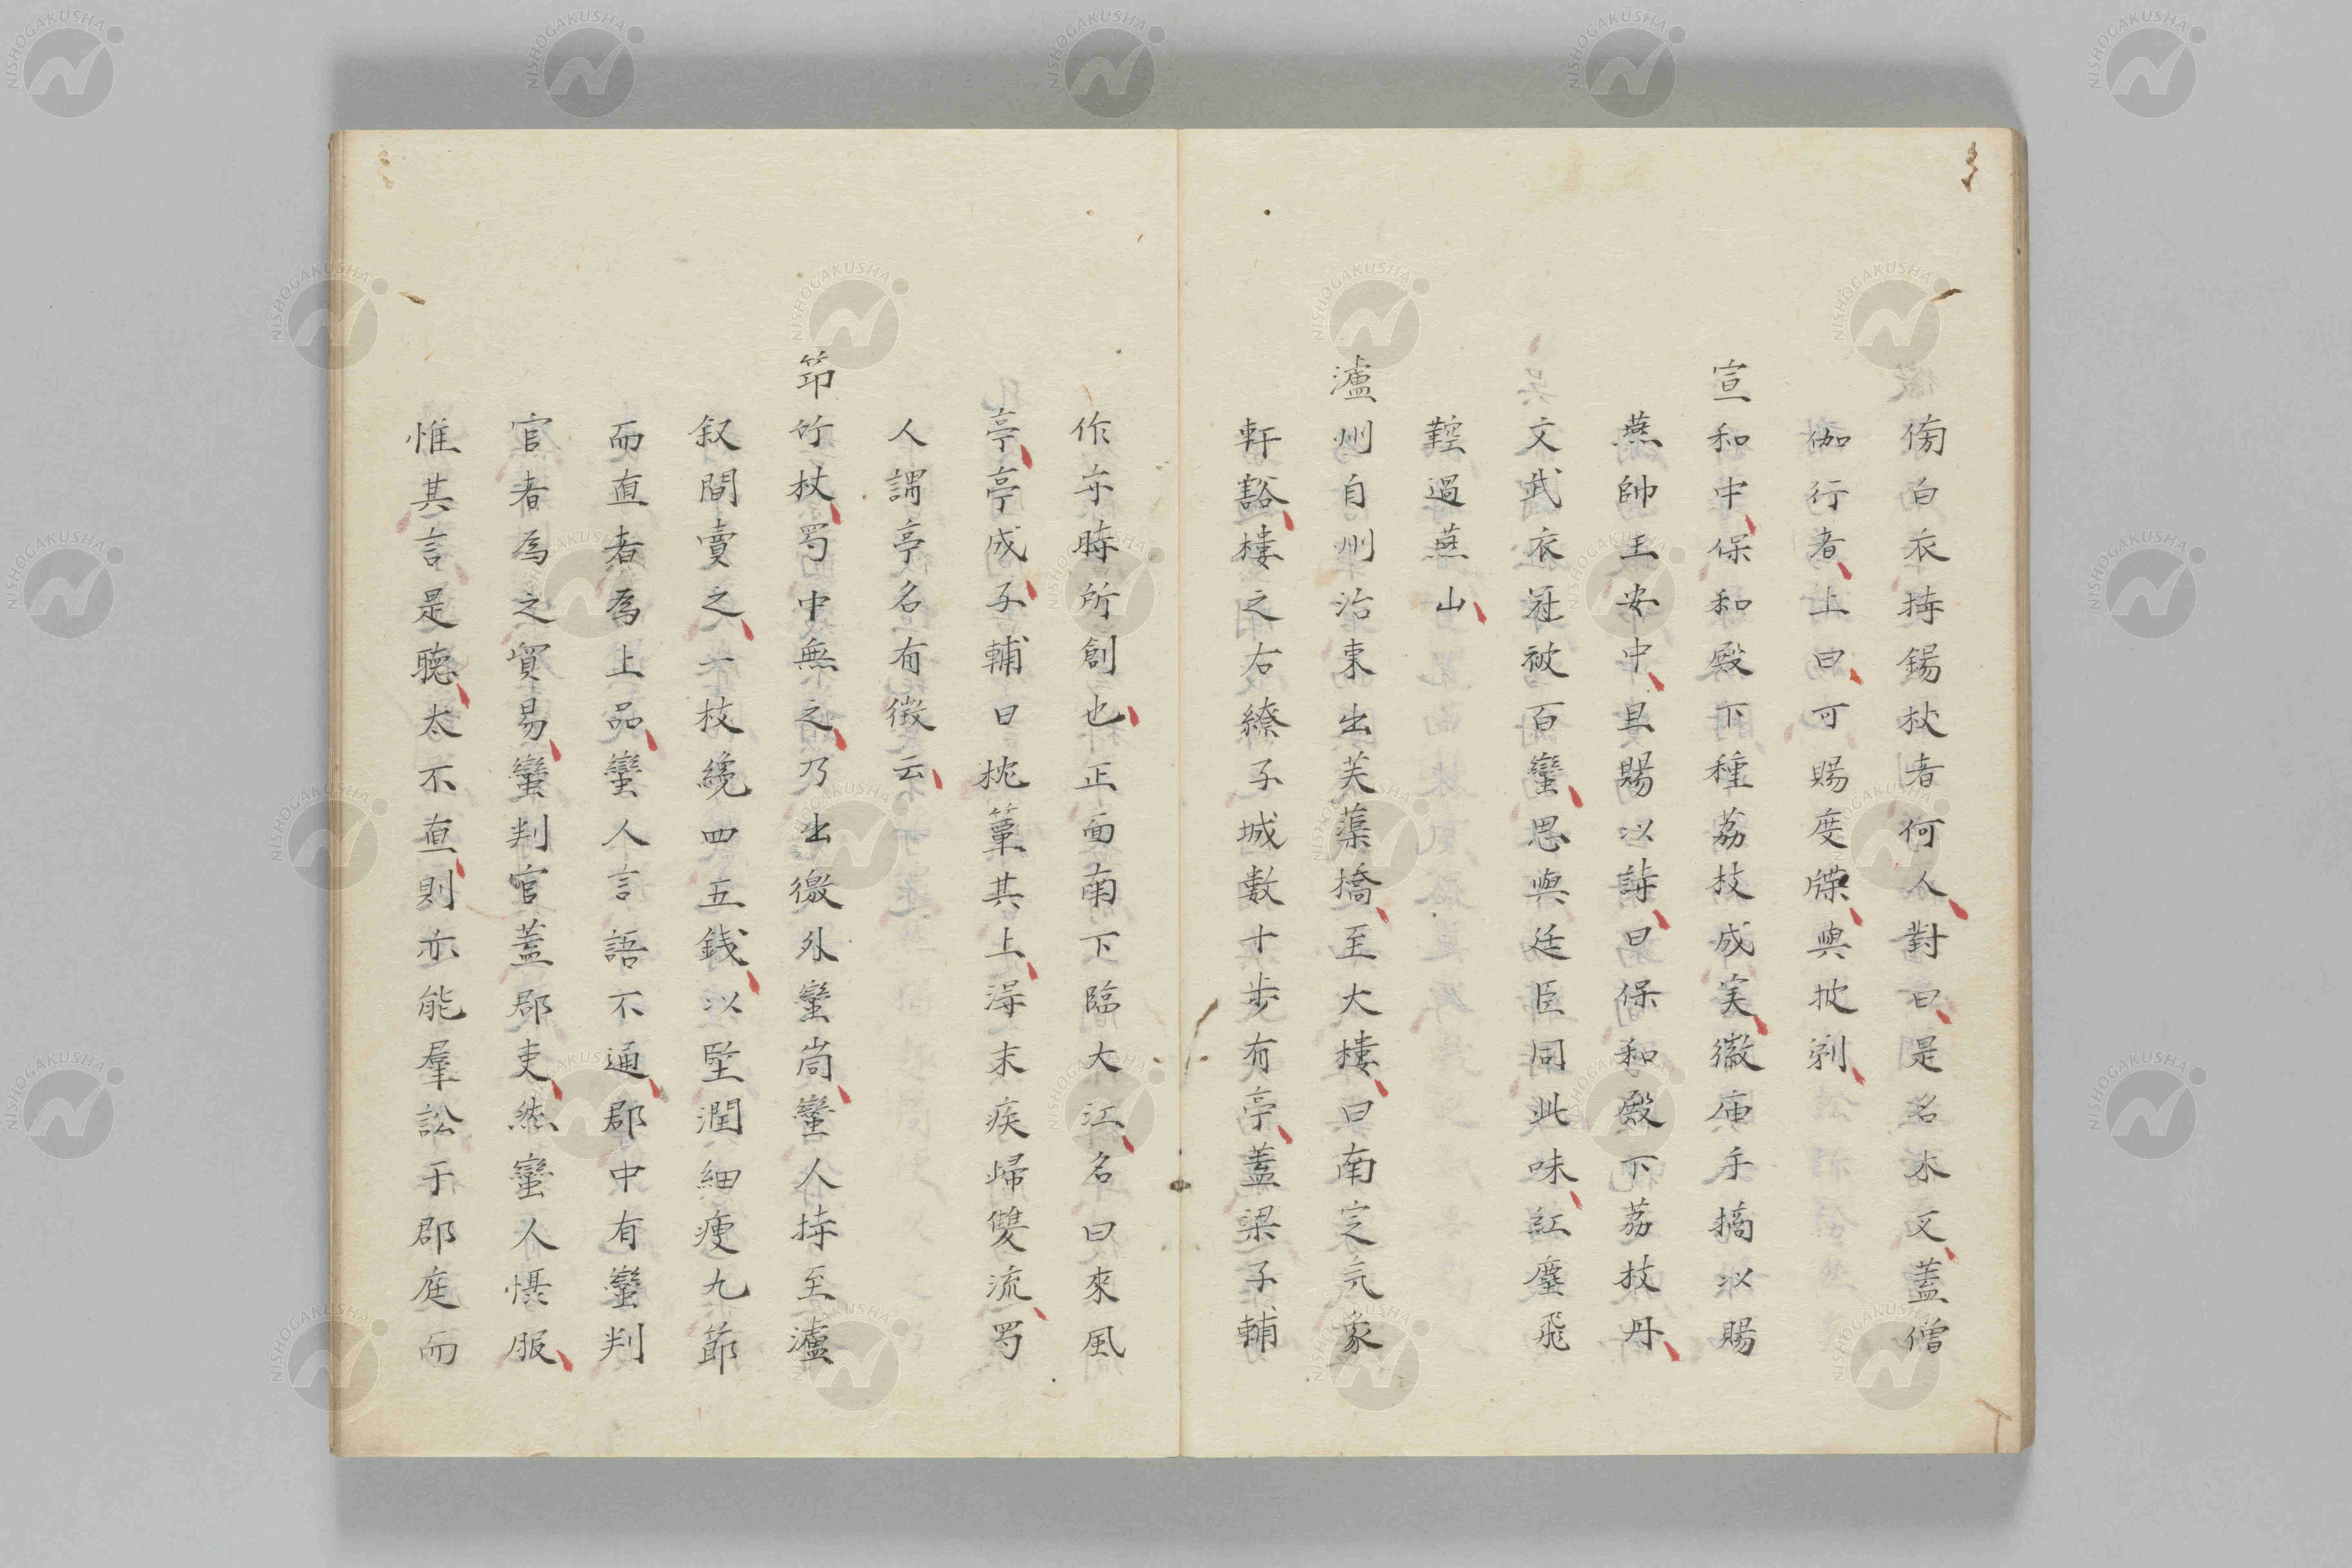 傍白衣持錫杖者何人對曰是名木叉蓋僧
伽行者上曰可賜度牒與披剃
宣和中保和殿下種荔枝成実徽庙手摘以賜
燕帥王安中且賜以詩曰保和殿下荔枝丹
文武衣冠被百蠻思與廷臣同此味紅塵飛
鞚過燕山
瀘州自州治東出芙蕖橋至大樓曰南定氣象
軒豁樓之右繚子城數十步有亭蓋梁子輔
作守時所創也正面南下臨大江名曰來風
亭亭成子輔日枕簟其上得末疾歸雙流蜀
人謂亭名有徵云
筇竹杖蜀中無之乃出徼外蠻峝蠻人持至瀘
叙間賣之一枝纔四五錢以堅潤細瘦九節
而直者爲上品蠻人言語不通郡中有蠻判
官者爲之貿易蠻判官蓋郡吏然蠻人懾服
惟其言是聽太不直則亦能羣訟于郡庭而
NISHOGAKUSHA